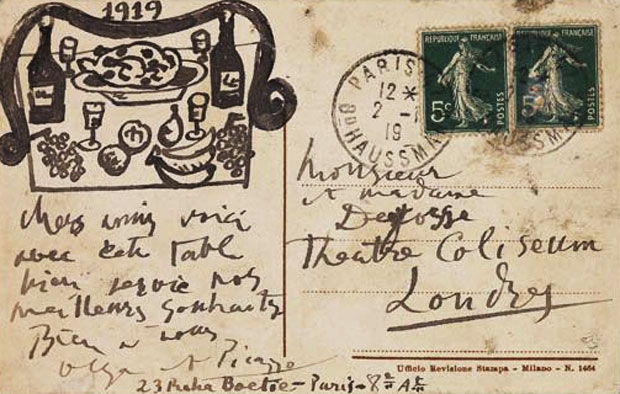 1919
Chers amis voici
avec cette table
bien servie nos
meilleurs souhaits
Bien à vous
Olga et Picasso
23 Boetie - Paris - 8e Ar
REPUBLIQUE FRANÇAISE
5c
REPUBLIQUE FRANÇAISE
5c
PARIS
12*
2 -1
19
Bd HAUSSMA
Monsieur
et madame
Theatre Coliseum
Londres
Ufficio Revisione Stampa - Milano - N. 1464